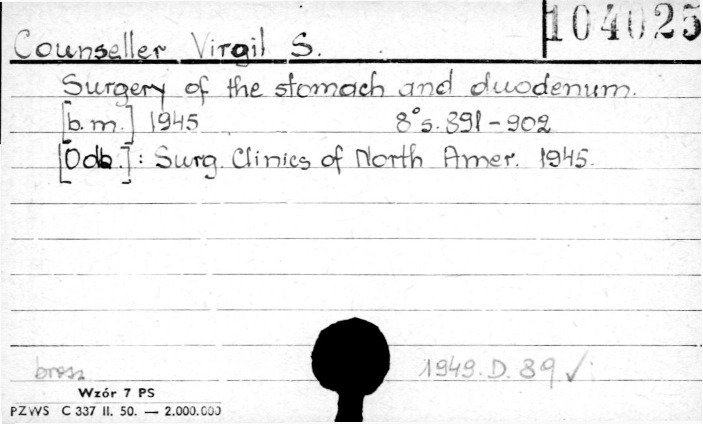 104025
Counseller Virgil S.
Surgery of the stomach and duodenum.
[b.m.] 1945 8° s. 891-902
[Odb.]: Surg. Clinics of North Amer. 1945.
brosz 1949. D. 89 ✓
Wzór 7 PS
PZWS C 337 II. 50. — 2.000.000